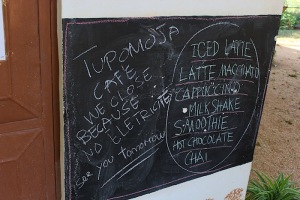 TUPOMOJA
CAFE
WE CLOSE
BECAUSE
NO ELETRICITE
see you tomorrow
ICED LATTE
LATTE MACCHIATO
CAPPUCCINO
MILKSHAKE
SMOOTHIE
HOT CHOCOLATE
CHAI